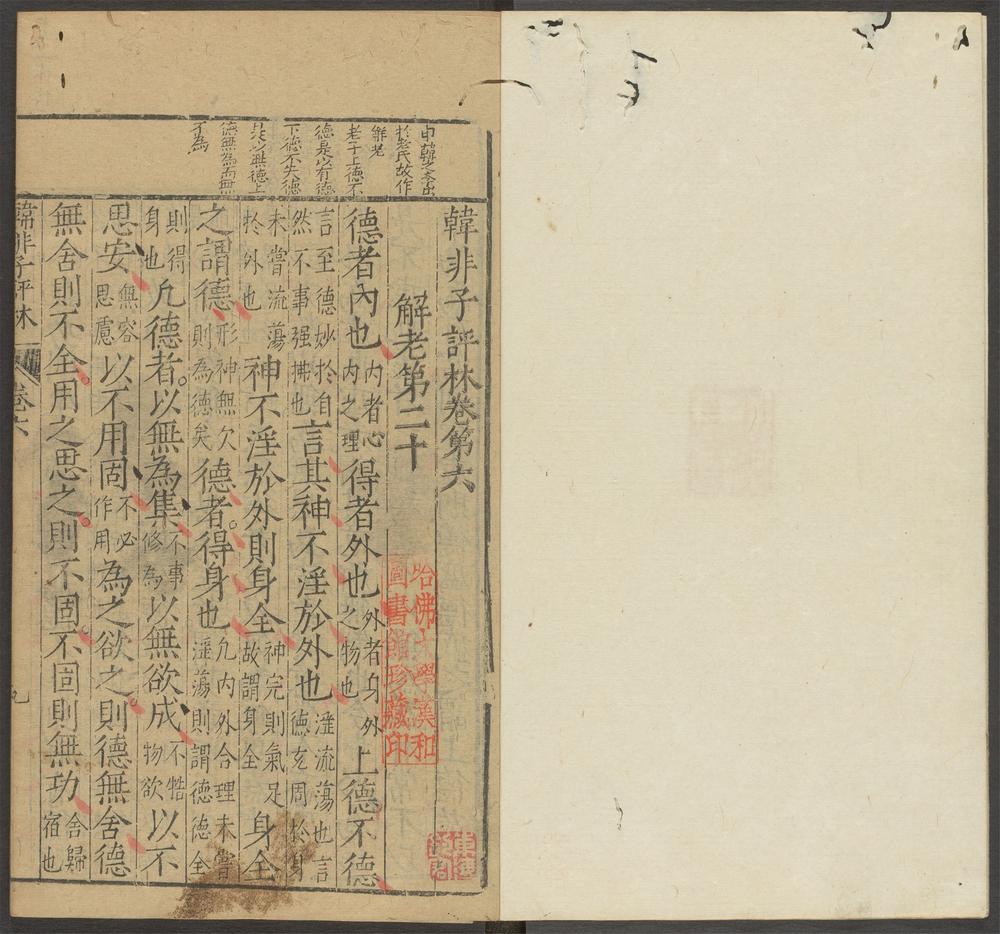 申韓之本出
於老氏故作
解老
老子上德不
德是以有德
下德不失德
是以無德上
德無為而無
不為
韓非子評林卷第六
解老第二十
德者內也內者心內之理得者外也外者身外之物也上德不德
言至德妙於自然不事强拂也言其神不淫於外也淫流蕩也言德玄周於身
未嘗流蕩於外也神不淫於外則身全神完則氣足故謂身全身全
之謂德形神無欠則為德矣德者得身也凡內外合理未嘗淫蕩則謂德德全
則得身也凡德者以無為集不事修為以無欲成不牿物欲以不
思安無容思慮以不用固不必作用為之欲之則德無舍德
無舍則不全用之思之則不固不固則無功舍歸宿也
韓非子評林 卷六
哈佛大學漢和
圖書館珍藏印